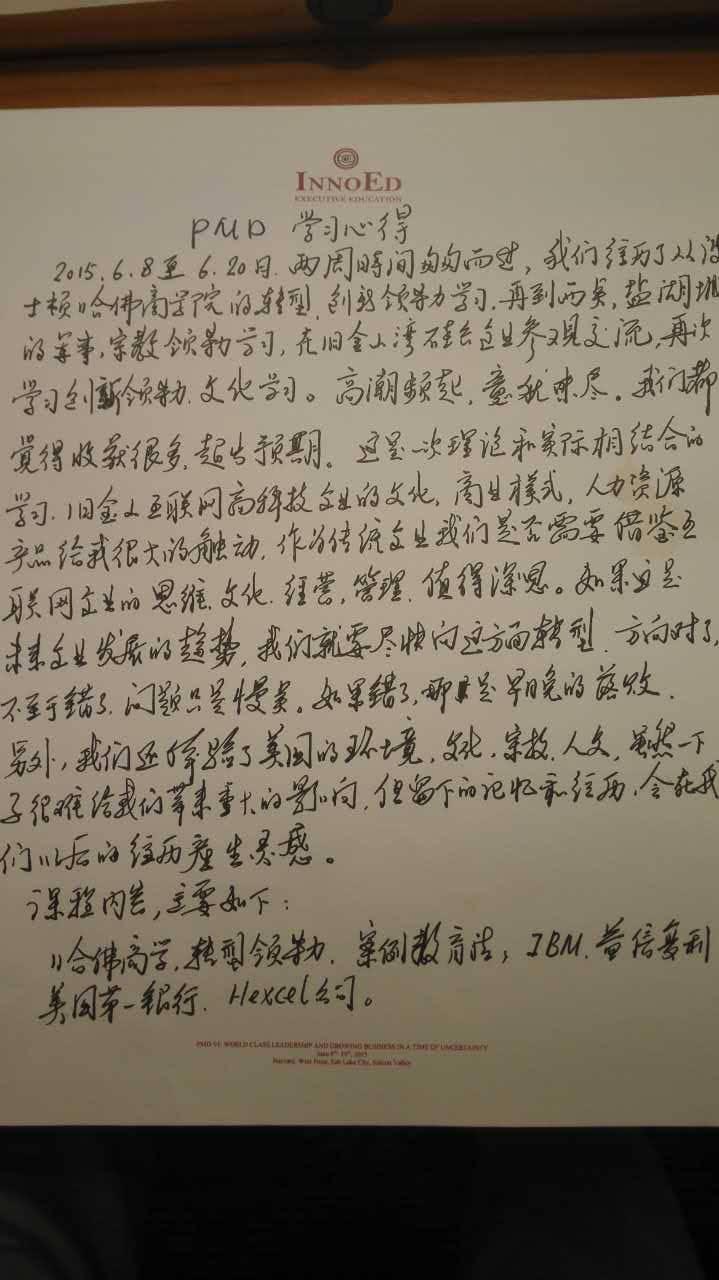 INNOED
EXECUTIVE EDUCATION
PMD 学习心得
2015.6.8至6.20日.两周时间匆匆而过,我们经历了从波
士顿哈佛商学院的转型,创新领导力学习.再到西点,盐湖城
的军事,宗教领导力学习,在旧金山湾硅谷企业参观交流,再次
学习创新领导力.文化学习。高潮频起,意犹未尽。我们都
觉得收获很多,超出预期。这是一次理论和实际相结合的
学习.旧金山互联网高科技企业的文化,商业模式,人力资源
产品给我很大的触动,作为传统企业我们是否需要借鉴互
联网企业的思维.文化.经营,管理.值得深思。如果这是
未来企业发展的趋势,我们就要尽快向这方面转型.方向对了,
不至于错了.问题只是慢点。如果错了,那是早晚的落败.
另外,我们还体验了美国的环境,文化.宗教.人文,虽然一下
子很难给我们带来重大的影响,但留下的记忆和经历,会在我
们以后的经历产生灵感。
课程内容,主要如下:
1)哈佛商学,转型领导力.案例教育法,IBM.普信复利
美国第一银行.Hexcel公司。
PMD VI: WORLD CLASS LEADERSHIP AND GROWING BUSINESS IN A TIME OF UNCERTAINTY
June 8th-19th, 2015
Harvard, West Point, Salt Lake City, Silicon Valley